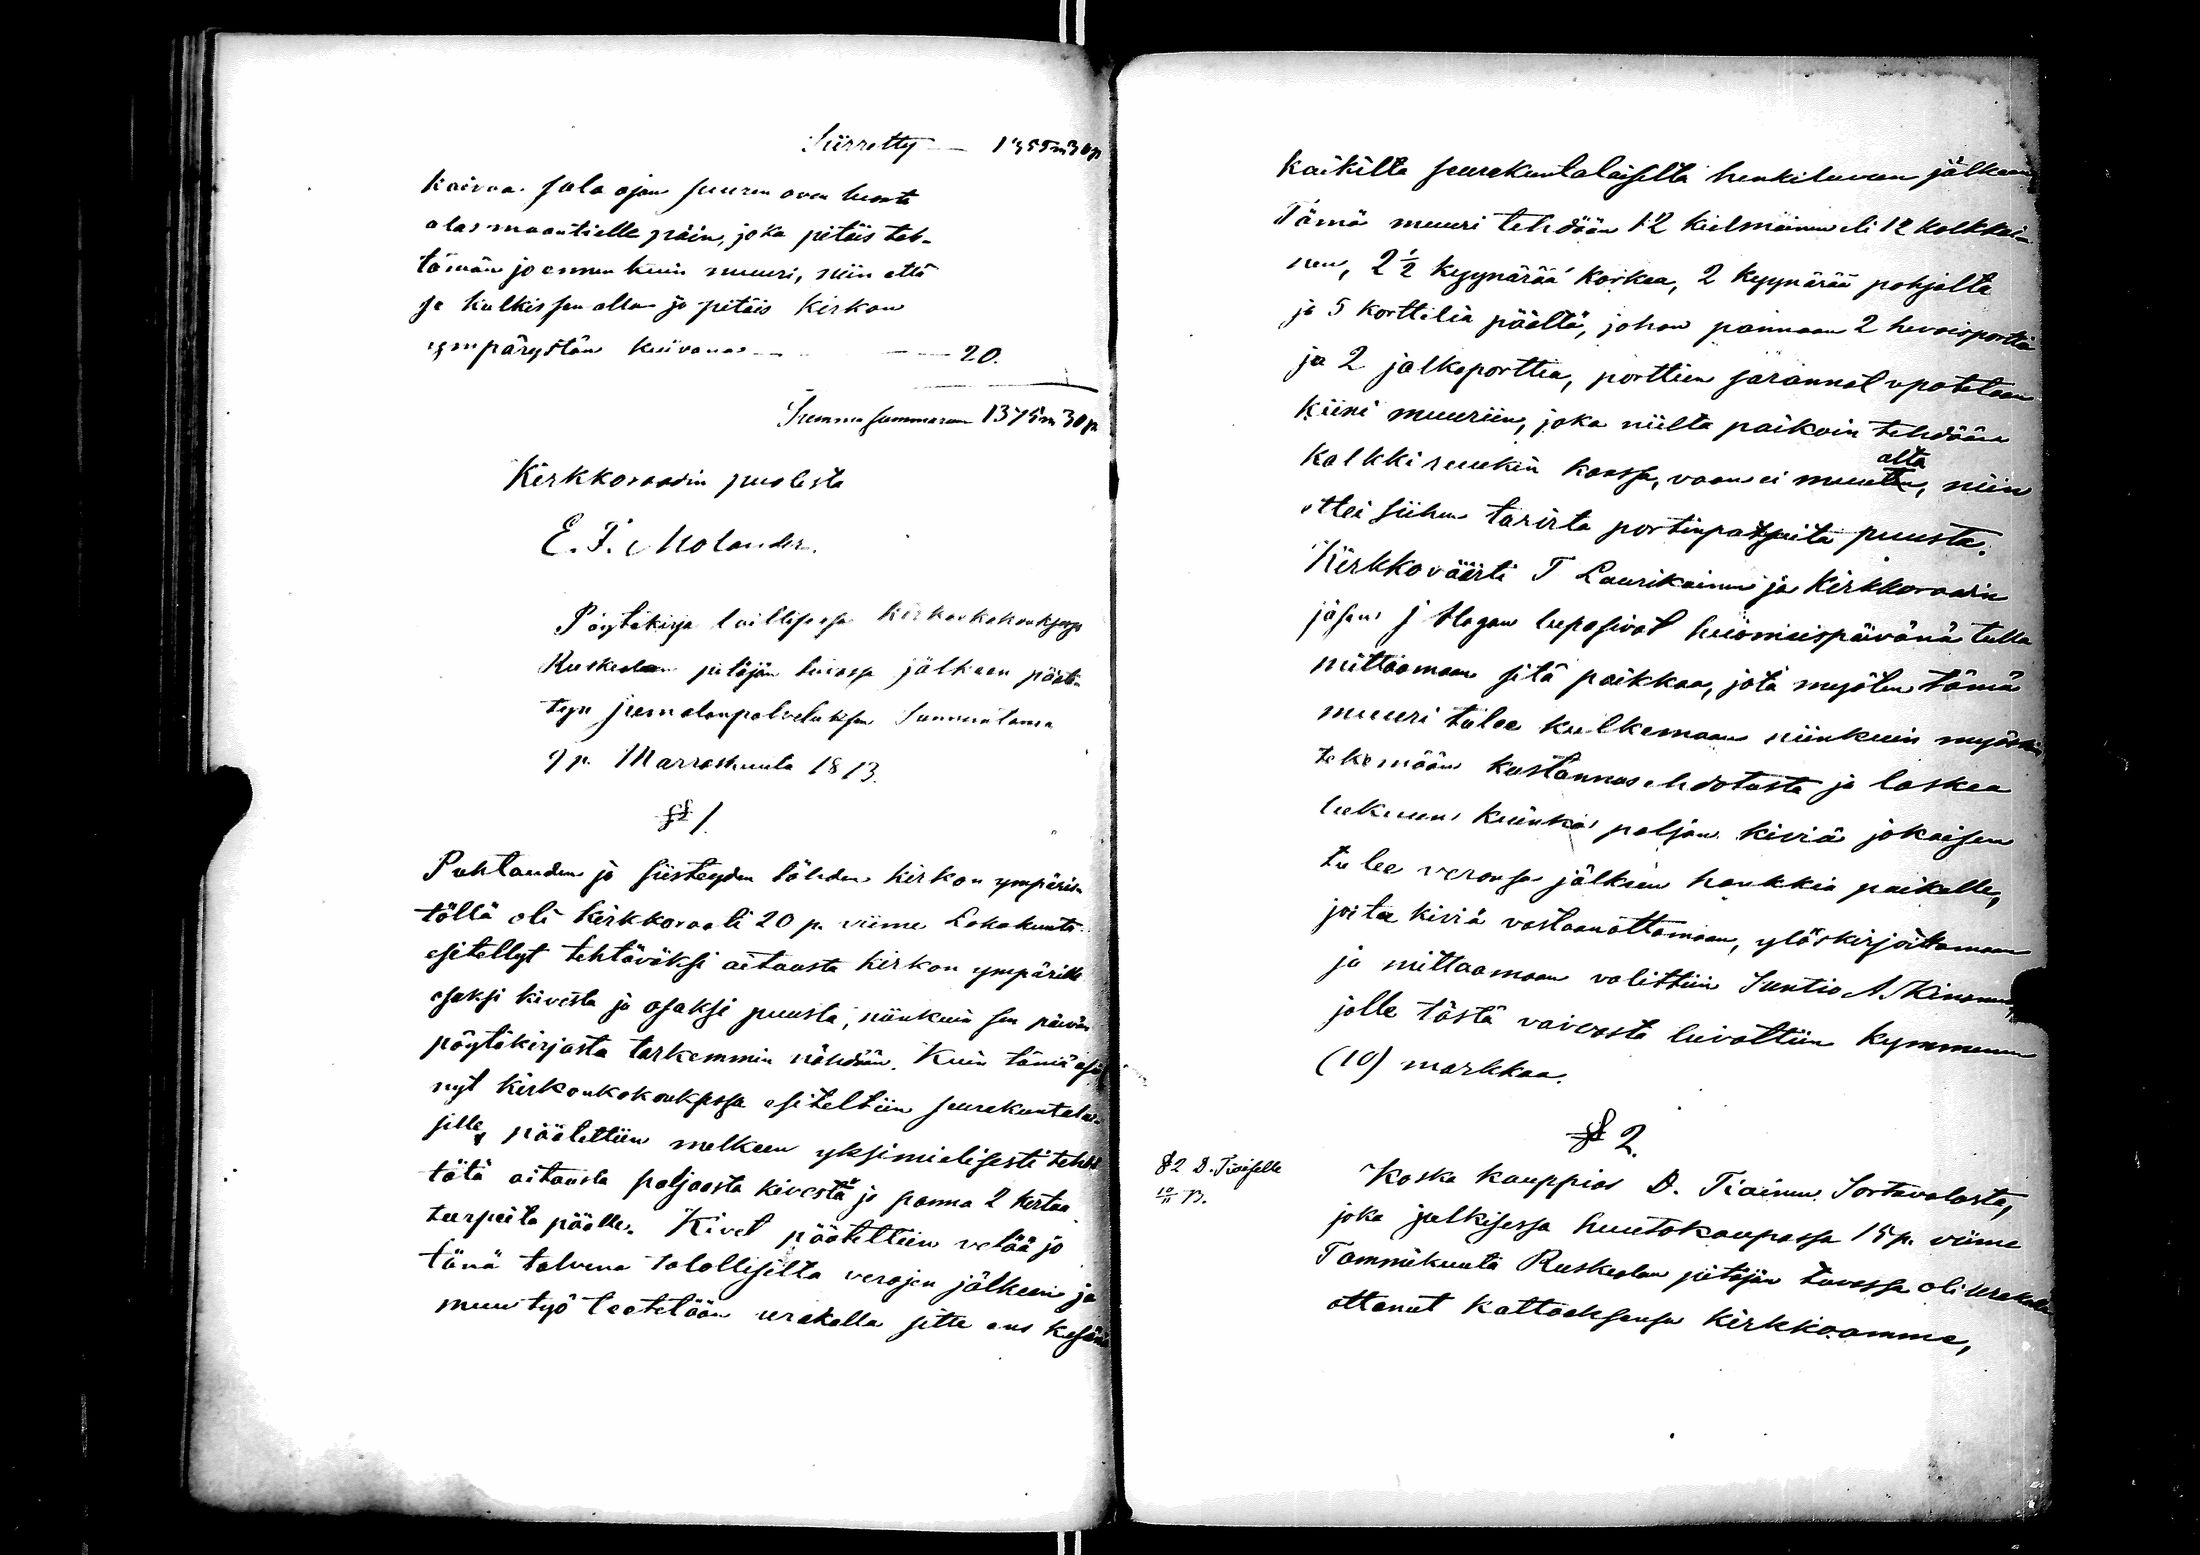 Siirretty — 1355 m 30 p
kaivaa sala ojan suuren oven luota
alas maantielle päin, joka pitäis teh-
tämän jo ennen kuin muuri, niin että
se kulkis sen alla ja pitäis kirkon
ympärystän kuivana — — 20.
Summa summarum 1375 m 30 p
Kirkkoraadin puolesta
E. F. Molander.
Pöytäkirja laillisessa kirkonkokouksessa
Ruskealan pitäjän tuvassa jälkeen päate-
tyn jumalanpalveluksen Sunnuntaina
9 p. Marraskuuta 1873.
§ 1.
Puhtauden ja siisteyden tähden kirkon ympäris-
töllä oli kirkkoraati 20 p. viime Lokakuuta
esitellyt tehtäväksi aitausta kirkon ympärille
osaksi kivestä ja osaksi puusta, niinkuin sen päivän
pöytäkirjasta tarkemmin nähdään. Kuin tämä asia
nyt kirkonkokouksessa esiteltiin seurakuntalai-
sille, päätettiin melkeen yksimielisesti tehdä
tätä aitausta paljaasta kivestä ja panna 2 kertaa
turpeita päälle. Kivet päätettiin vetää jo
tänä talvena talollisilta verojen jälkeen ja
muu työ teetetään urakalla sitte ens kesänä
kaikilta seurakuntalaisilta henkiluvun jälkeen
Tämä muuri tehdään 12 kulmainen eli 12 kolkkai-
nen, 2 ½ kyynärää korkea, 2 kyynärää pohjalta
ja 5 korttelia päältä, johon pannaan 2 hevoisporttia
ja 2 jalkaporttia, porttien sarannat upotetaan
kiini muuriin, joka niiltä paikoin tehdään
kalkki ruukin kanssa, vaan ei muualta, niin
ettei siihen tarvita portinpatsaita puusta.
Kirkkoväärti T Laurikainen ja Kirkkoraadin
jäsen J Hagan lupasivat huomispäivänä tulla
mittaamaan sitä paikkaa, jota myöten tämä
muuri tulee kulkemaan niinkuin myöskin
tekemään kustannusehdotusta ja laskea
lukuun kuinka paljon kiviä jokaisen
tulee veronsa jälkeen hankkia paikalle,
joita kiviä vastaanottamaan, ylöskirjoittamaan
ja mittaamaan valittiin Suntio A. Kinnunen,
jolle tästä vaivasta luvattiin kymmenen
(10) markkaa.
§ 2.
§ 2 D. Tiaiselle
10/11 73.
Koska kauppias D. Tiainen Sortavalasta,
joka julkisessa huutokaupassa 15 p. viime
Tammikuuta Ruskealan pitäjän tuvassa oli urakalla
ottanut kattaaksensa kirkkoamme,